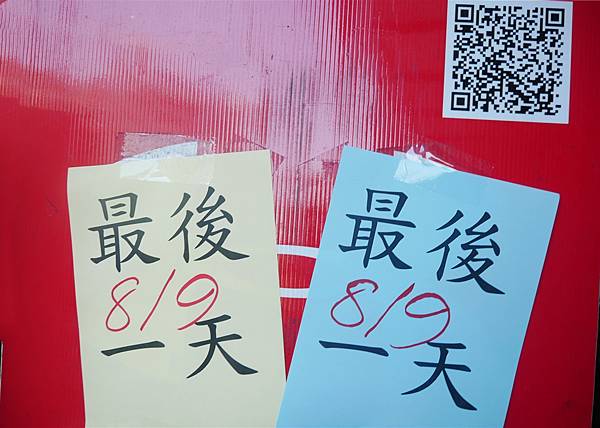 最後
8/9
一天
最後
8/9
一天